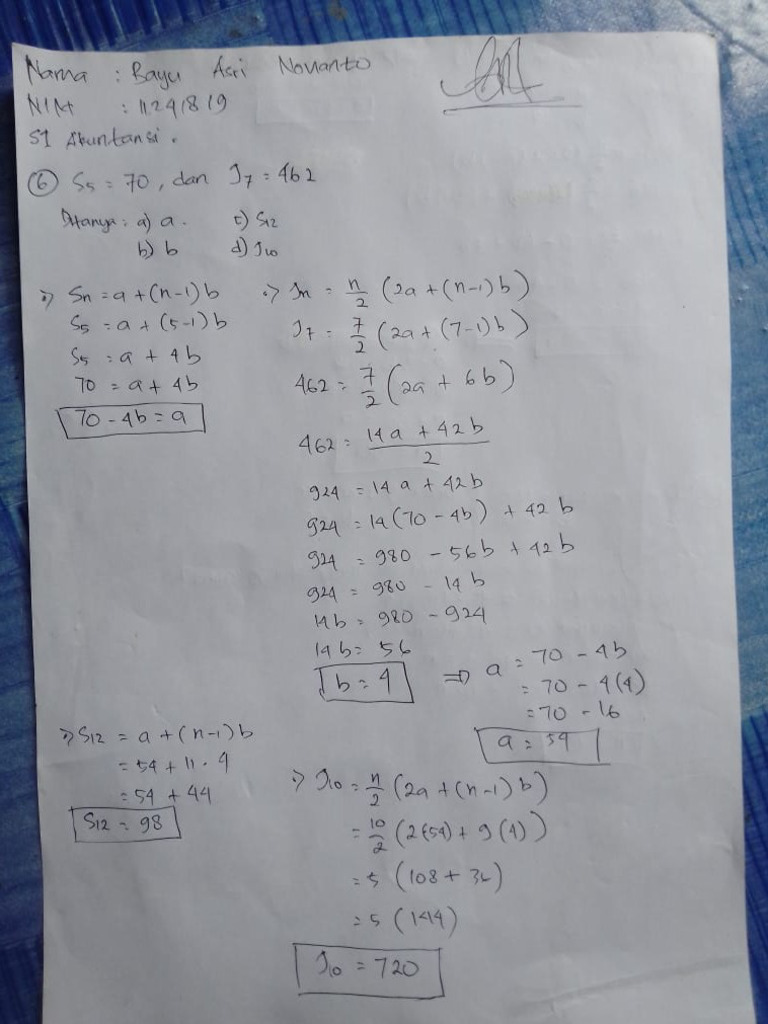 Nama : Bayu Asri Novianto
NIM : 11241819
S1 Akuntansi.
⑥ S5 = 70, dan J7 = 462
Ditanya : a) a. c) S12
b) b d) J10
:> Sn = a + (n-1) b
S5 = a + (5-1) b
S5 = a + 4b
70 = a + 4b
70 - 4b = a
:> Jn = n/2 (2a + (n-1) b)
J7 = 7/2 (2a + (7-1) b)
462 = 7/2 (2a + 6b)
462 = 14a + 42b / 2
924 = 14a + 42b
924 = 14(70 - 4b) + 42b
924 = 980 - 56b + 42b
924 = 980 - 14b
14b = 980 - 924
14b = 56
b = 4
=> a = 70 - 4b
= 70 - 4(4)
= 70 - 16
a = 54
:> S12 = a + (n-1) b
= 54 + 11 . 4
= 54 + 44
S12 = 98
:> J10 = n/2 (2a + (n-1) b)
= 10/2 (2(54) + 9(4))
= 5 (108 + 36)
= 5 (144)
J10 = 720